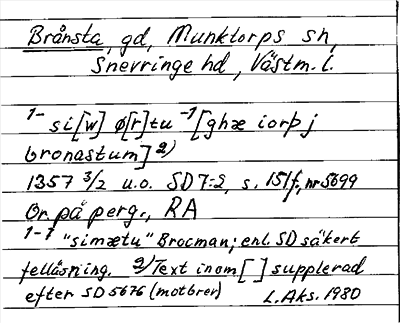 Brånsta, gd, Munktorps sn,
Snevringe hd, Västm. l.
1- si[w] ø[r]tu -1 [ghæ iorþ j
bronastum] 2)
1357 3/2 u.o. SD 7:2, s. 151f, nr 5699
Or på perg., RA
1-1 "simætu" Brocman; enl. SD säkert
felläsning. 2) Text inom [ ] supplerad
efter SD 5676 (motbrev) L. Aks. 1980